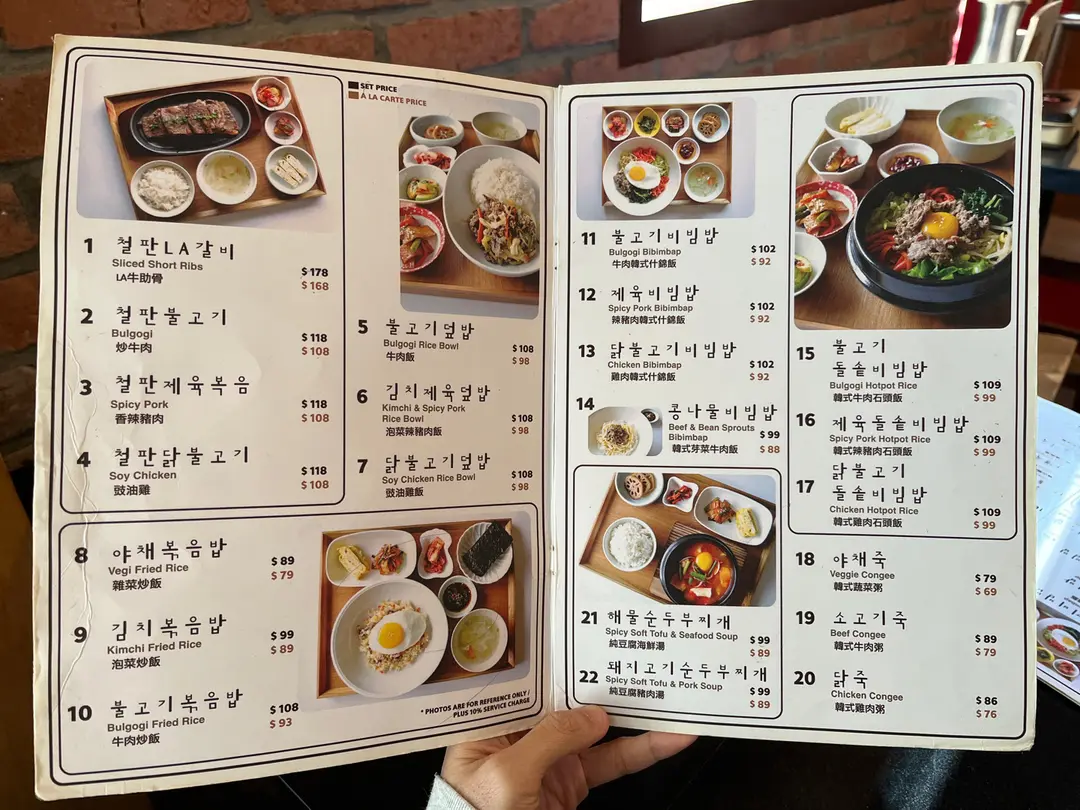 SET PRICE
À LA CARTE PRICE
1 철판LA갈비
Sliced Short Ribs
LA牛助骨
$ 178
$ 168
2 철판불고기
Bulgogi
炒牛肉
$ 118
$ 108
3 철판제육볶음
Spicy Pork
香辣豬肉
$ 118
$ 108
4 철판닭불고기
Soy Chicken
豉油雞
$ 118
$ 108
5 불고기덮밥
Bulgogi Rice Bowl
牛肉飯
$ 108
$ 98
6 김치제육덮밥
Kimchi & Spicy Pork
Rice Bowl
泡菜辣豬肉飯
$ 108
$ 98
7 닭불고기덮밥
Soy Chicken Rice Bowl
豉油雞飯
$ 108
$ 98
8 야채볶음밥
Vegi Fried Rice
雜菜炒飯
$ 89
$ 79
9 김치볶음밥
Kimchi Fried Rice
泡菜炒飯
$ 99
$ 89
10 불고기볶음밥
Bulgogi Fried Rice
牛肉炒飯
$ 108
$ 93
* PHOTOS ARE FOR REFERENCE ONLY /
PLUS 10% SERVICE CHARGE
11 불고기비빔밥
Bulgogi Bibimbap
牛肉韓式什錦飯
$ 102
$ 92
12 제육비빔밥
Spicy Pork Bibimbap
辣豬肉韓式什錦飯
$ 102
$ 92
13 닭불고기비빔밥
Chicken Bibimbap
雞肉韓式什錦飯
$ 102
$ 92
14 콩나물비빔밥
Beef & Bean Sprouts
Bibimbap
韓式芽菜牛肉飯
$ 99
$ 88
21 해물순두부찌개
Spicy Soft Tofu & Seafood Soup
純豆腐海鮮湯
$ 99
$ 89
22 돼지고기순두부찌개
Spicy Soft Tofu & Pork Soup
純豆腐豬肉湯
$ 99
$ 89
15 불고기
돌솥비빔밥
Bulgogi Hotpot Rice
韓式牛肉石頭飯
$ 109
$ 99
16 제육돌솥비빔밥
Spicy Pork Hotpot Rice
韓式辣豬肉石頭飯
$ 109
$ 99
17 닭불고기
돌솥비빔밥
Chicken Hotpot Rice
韓式雞肉石頭飯
$ 109
$ 99
18 야채죽
Veggie Congee
韓式蔬菜粥
$ 79
$ 69
19 소고기죽
Beef Congee
韓式牛肉粥
$ 89
$ 79
20 닭죽
Chicken Congee
韓式雞肉粥
$ 86
$ 76